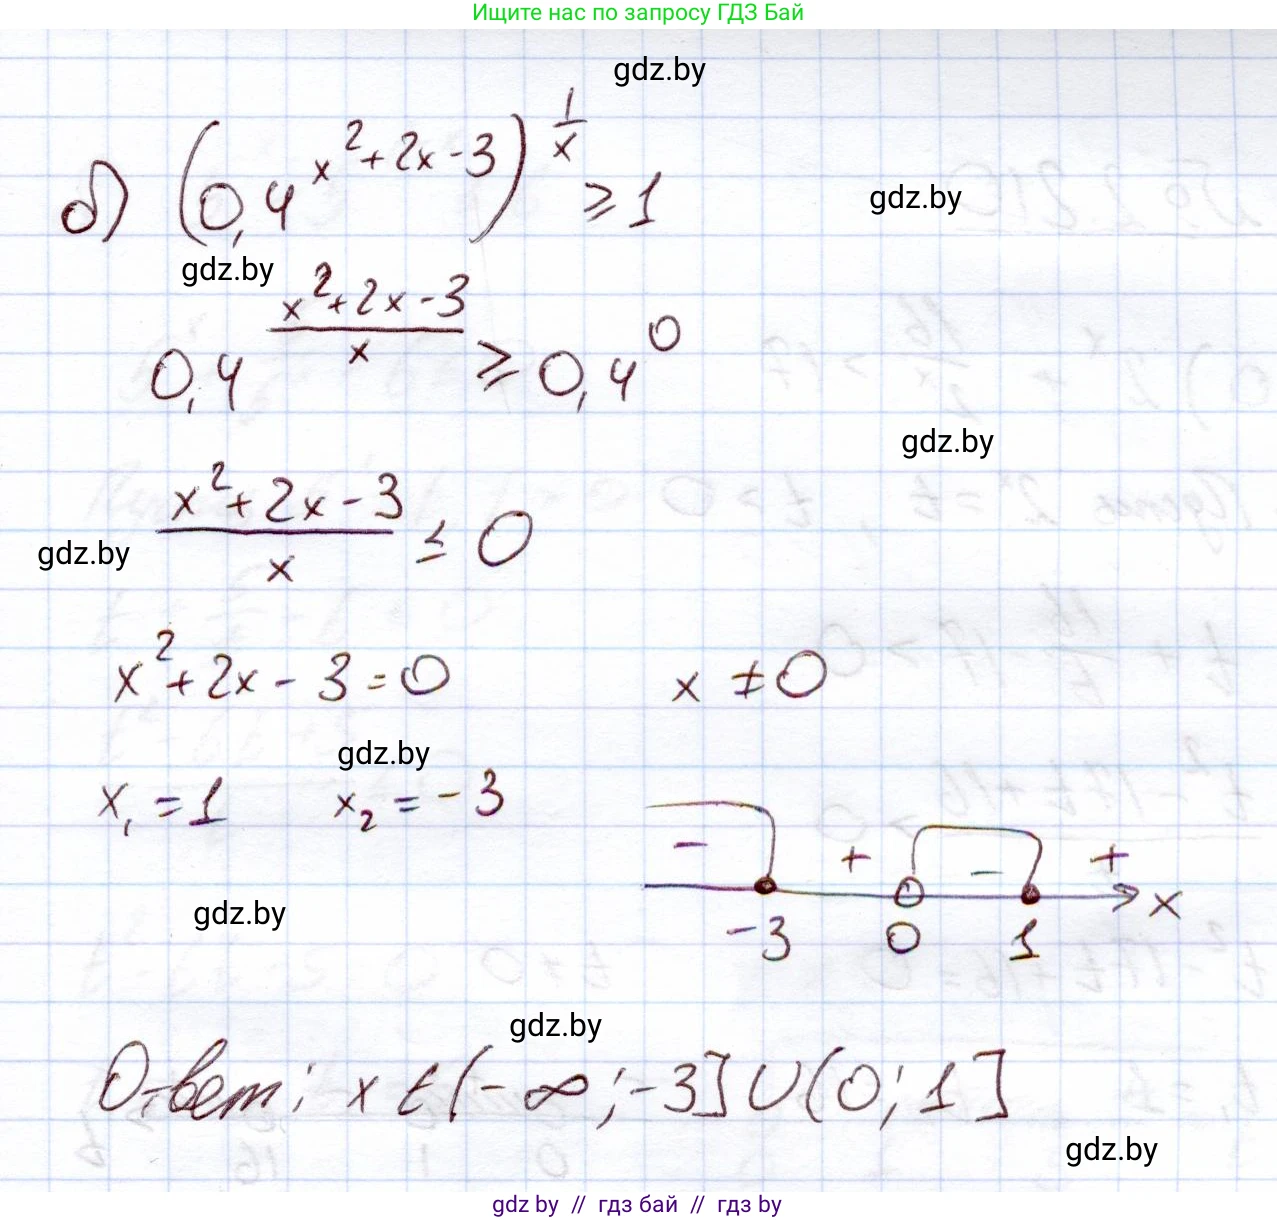 Ищите нас по запросу ГДЗ Бай
gdz.by
б) (0,4^(x²+2x-3))^(1/x) ≥ 1
gdz.by
gdz.by
0,4^((x²+2x-3)/x) ≥ 0,4^0
gdz.by
(x²+2x-3)/x ≤ 0
gdz.by
x²+2x-3=0 x≠0
gdz.by
x₁=1 x₂=-3
- + - +
-3 0 1 x
gdz.by
gdz.by
Ответ: x ∈ (-∞;-3]∪(0;1]
gdz.by
gdz.by // гдз бай // гдз by